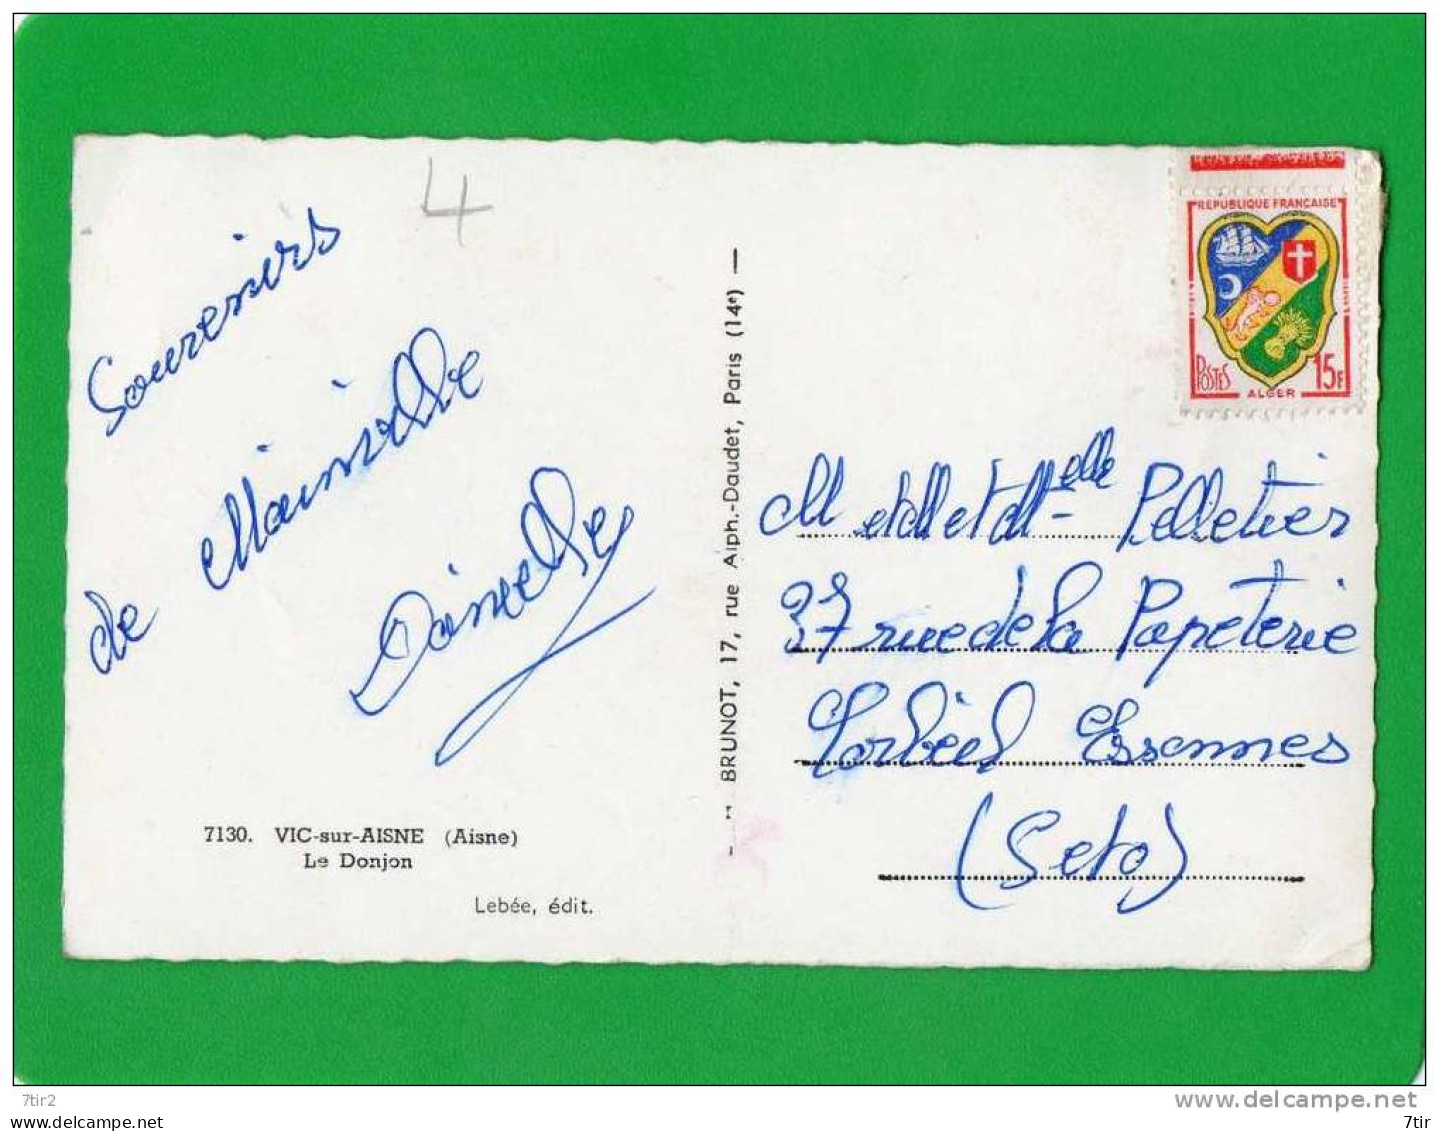 4
Souvenirs
de Mainville
Danielle
7130. VIC-sur-AISNE (Aisne)
Le Donjon
Lebée, édit.
BRUNOT, 17, rue Alph.-Daudet, Paris (14e) —
REPUBLIQUE FRANÇAISE
POSTES 15F
ALGER
M et M et Melle Pelletier
37 rue de la Papeterie
Corbeil Essonnes
(Seto)
7tir2
www.delcampe.net
www.delcampe.net
7tir